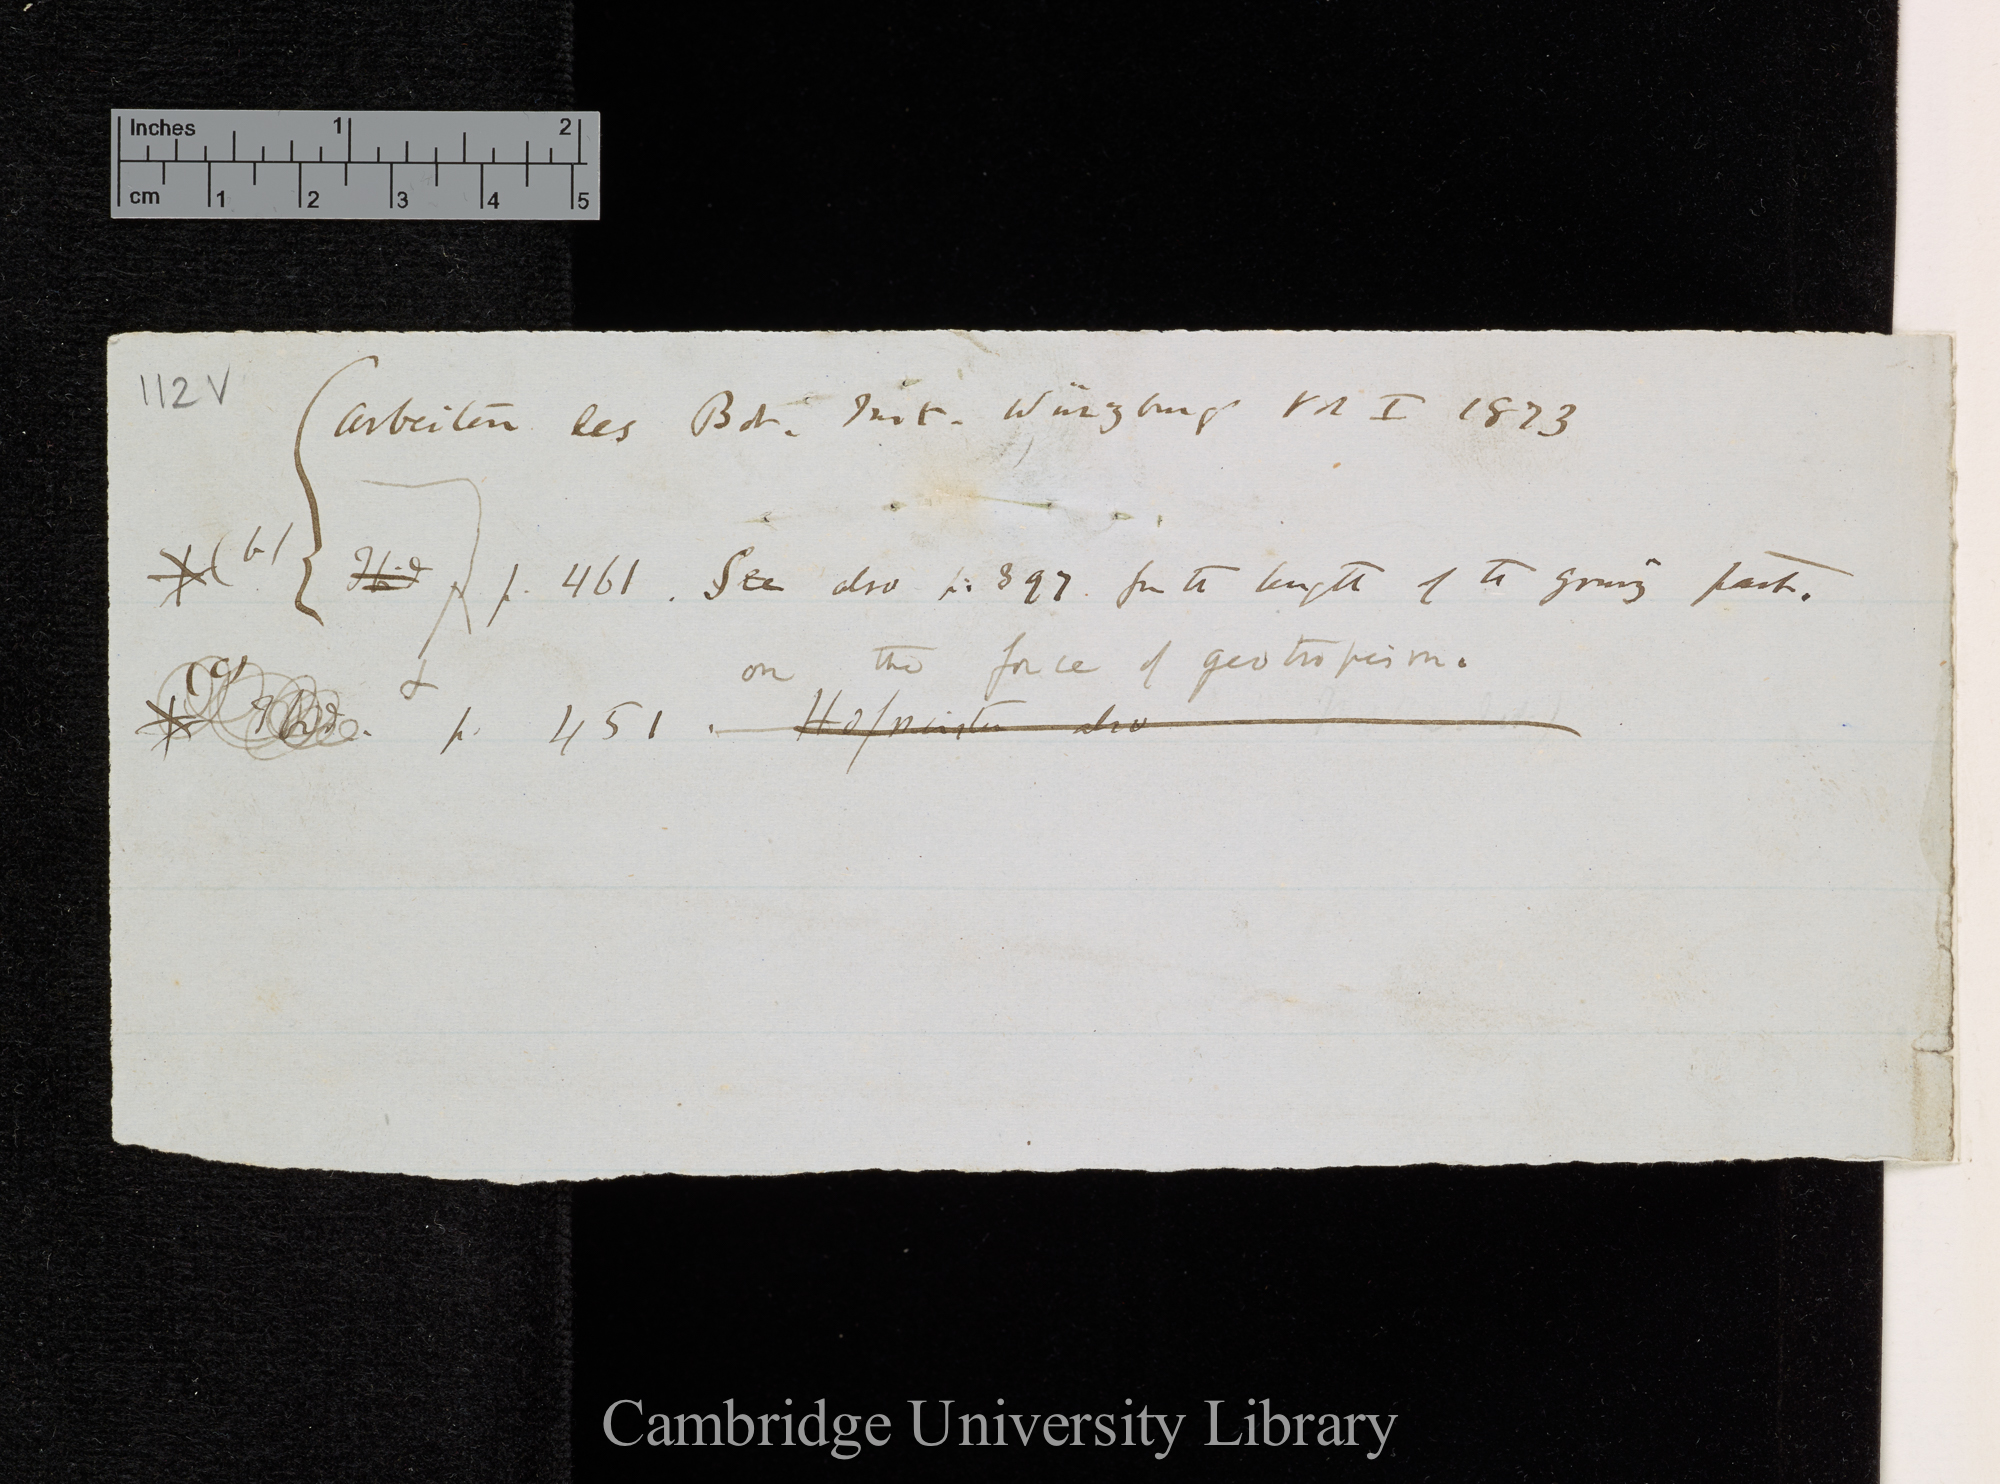 Inches 1 2
cm 1 2 3 4 5
112V
Arbeiten des Bot. Inst. Würzburg Vol I 1873
(b) Ibid p. 461. See also p. 397 for the length of the growing part.
on the force of geotropism.
Ibid. p. 451. Hofmeister also
Cambridge University Library